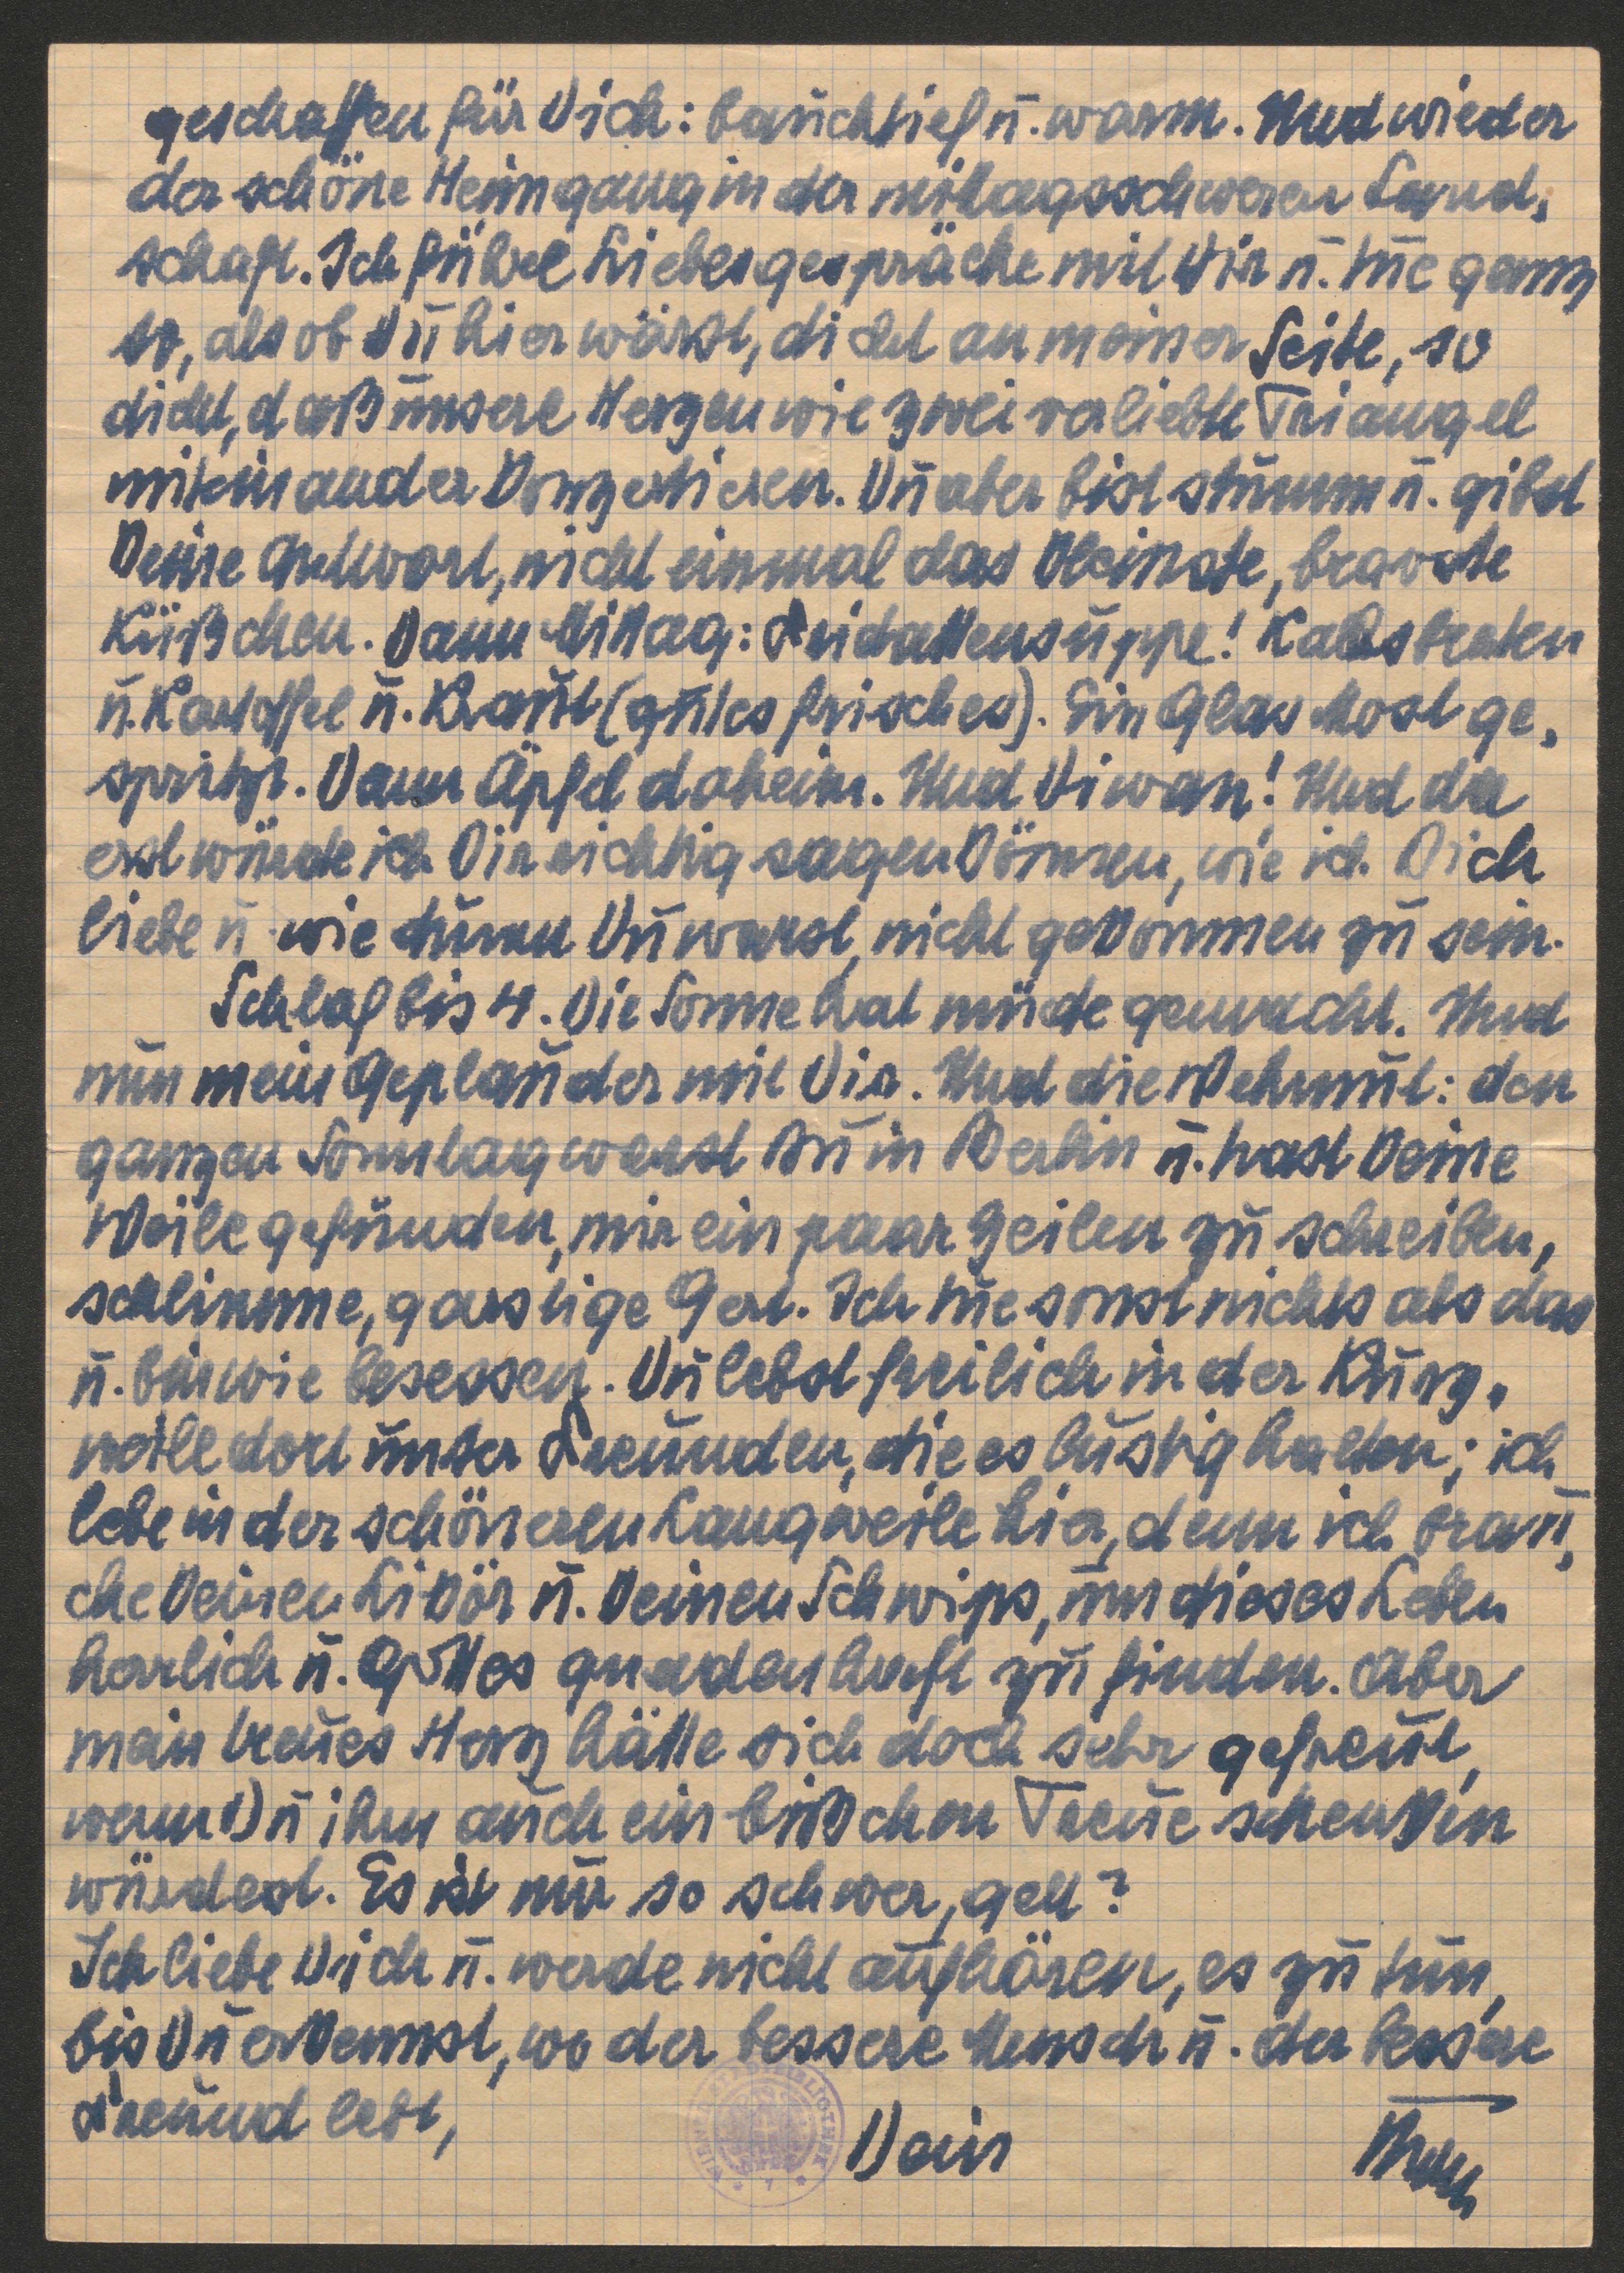 geschaffen für Dich: bauchtief u. warm. Und wieder
der schöne Heimgang in der mittagsschweren Land-
schaft. Ich führe Liebesgespräche mit Dir u. tue ganz
so, als ob Du hier wärst, dicht an meiner Seite, so
dicht, daß unsere Herzen wie zwei verliebte Triangel
miteinander konzertieren. Du aber bist stumm u. gibst
keine Antwort, nicht einmal das kleinste, bravste
Küßchen. Dann Mittag: Fridattensuppe! Kalbsbraten
u. Kartoffel u. Kraut (gutes frisches). Ein Glas Most ge-
spritzt. Dann Äpfel daheim. Und Diwan! Und da
erst würde ich Dir richtig sagen können, wie ich Dich
liebe u. wie dumm Du warst, nicht gekommen zu sein.
Schlaf bis 4. Die Sonne hat müde gemacht. Und
nun mein Geplauder mit Dir. Und die Wehmut: den
ganzen Sonntag warst Du in Berlin u. hast keine
Weile gefunden, mir ein paar Zeilen zu schreiben,
schlimme, garstige Gerl. Ich tue sonst nichts als das
u. bin wie besessen. Du lebst freilich in der Kurz-
weile dort unter Freunden, die es lustig halten; ich
lebe in der schöneren Langweile hier, denn ich brau-
che keinen Likör u. keinen Schwips, um dieses Leben
herrlich u. Gottes gnadenhaft zu finden. Aber
mein treues Herz hätte sich doch sehr gefreut,
wenn Du ihm auch ein bißchen Treue schenken
würdest. Es ist nur so schwer, gell?
Ich liebe Dich u. werde nicht aufhören, es zu tun,
bis Du erkennst, wo der bessere Mensch u. der bessere
Freund lebt,
Dein
WIENER STADTBIBLIOTHEK